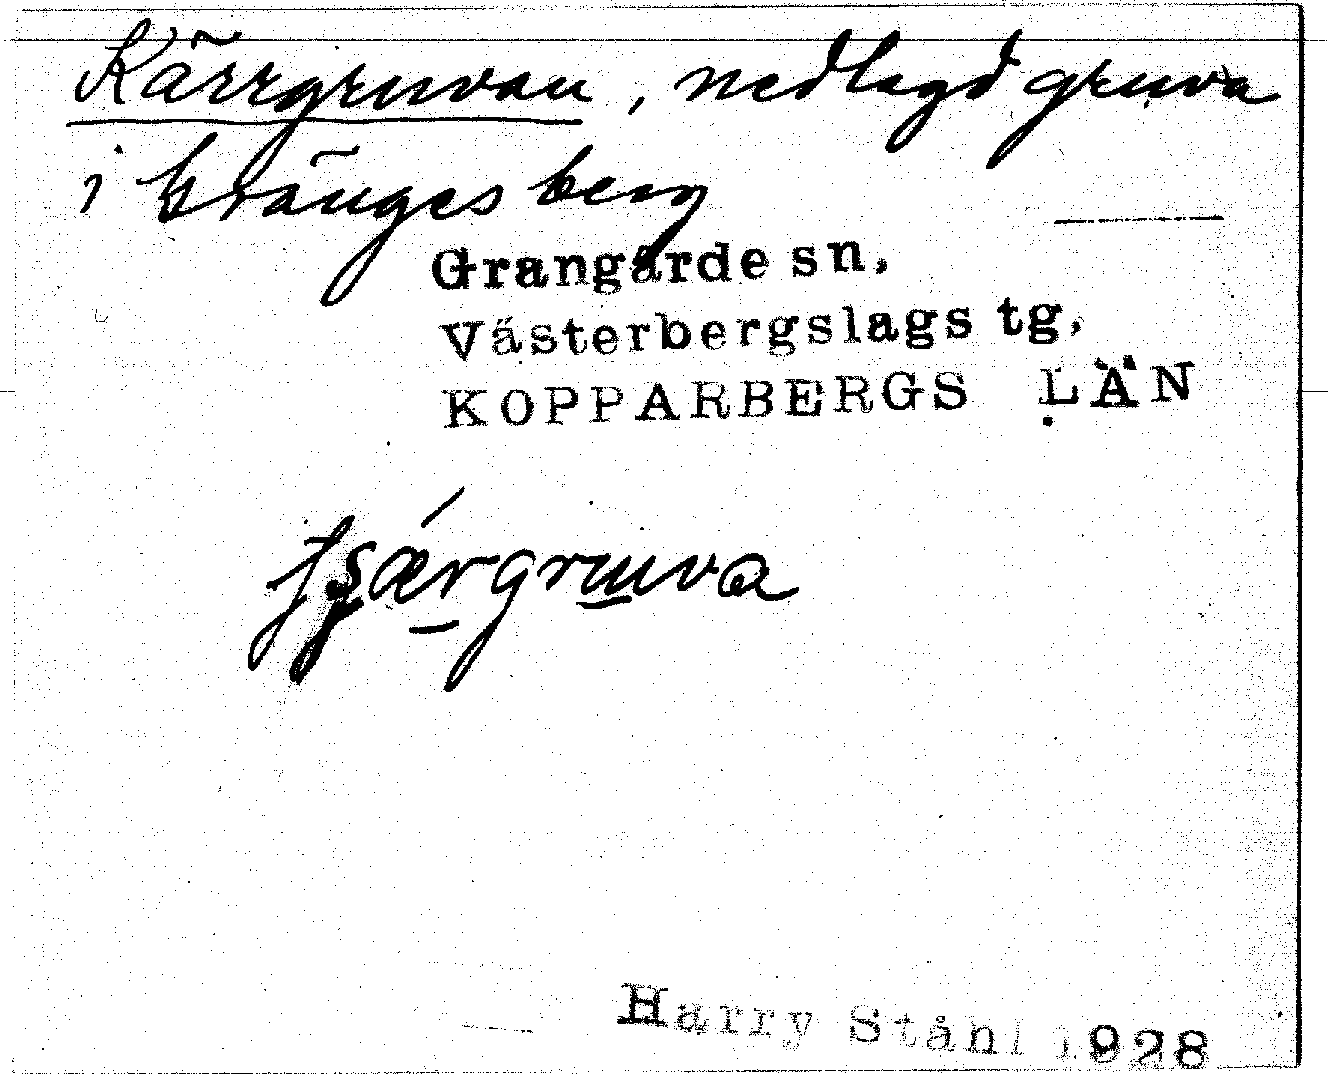 Kärrgruvan, nedlagd gruva
i Grängesberg
Grangärde sn,
Västerbergslags tg,
KOPPARBERGS LÄN
Harry Ståhl 1928